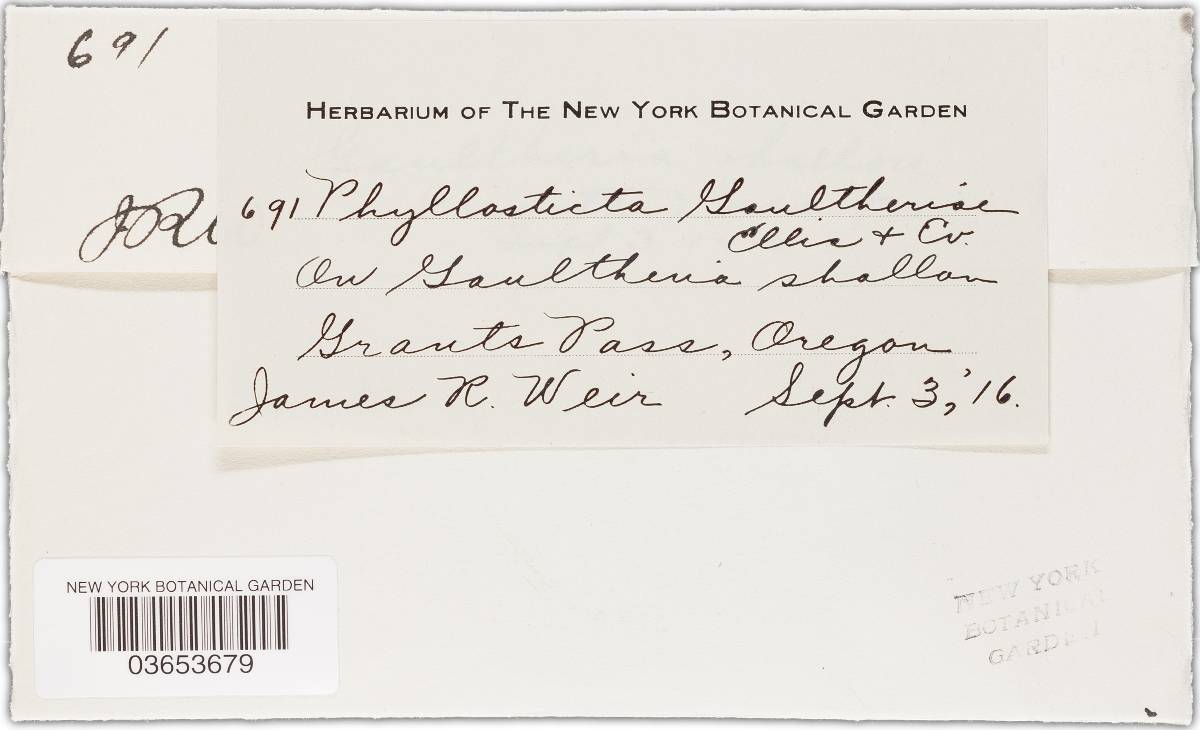 691
HERBARIUM OF THE NEW YORK BOTANICAL GARDEN
691 Phyllosticta Gaultheriae
Ellis & Ev.
On Gaultheria shallon
Grants Pass, Oregon
James R. Weir Sept. 3, '16.
NEW YORK BOTANICAL GARDEN
03653679
NEW YORK
BOTANICAL
GARDEN